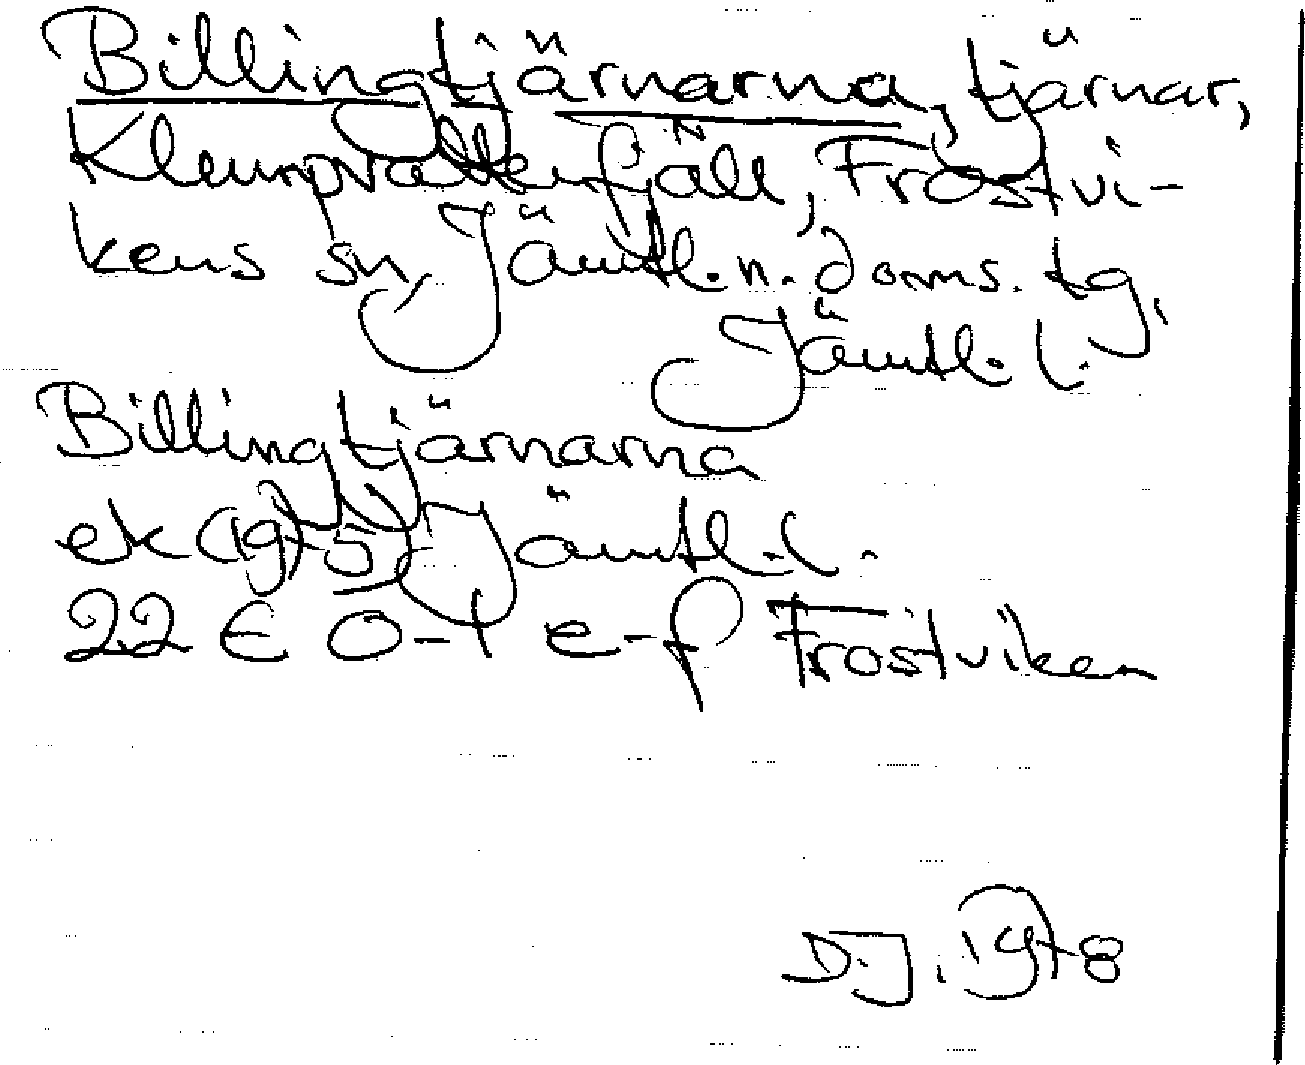 Billingtjärnarna, tjärnar,
Klumpvattenfjäll, Frostvi-
kens sn, Jämtl. n. doms. tg,
Jämtl. l.
Billingtjärnarna
ek (1975) Jämtl. l.
22 E 0-1 e-f Frostviken
D.J. 1978